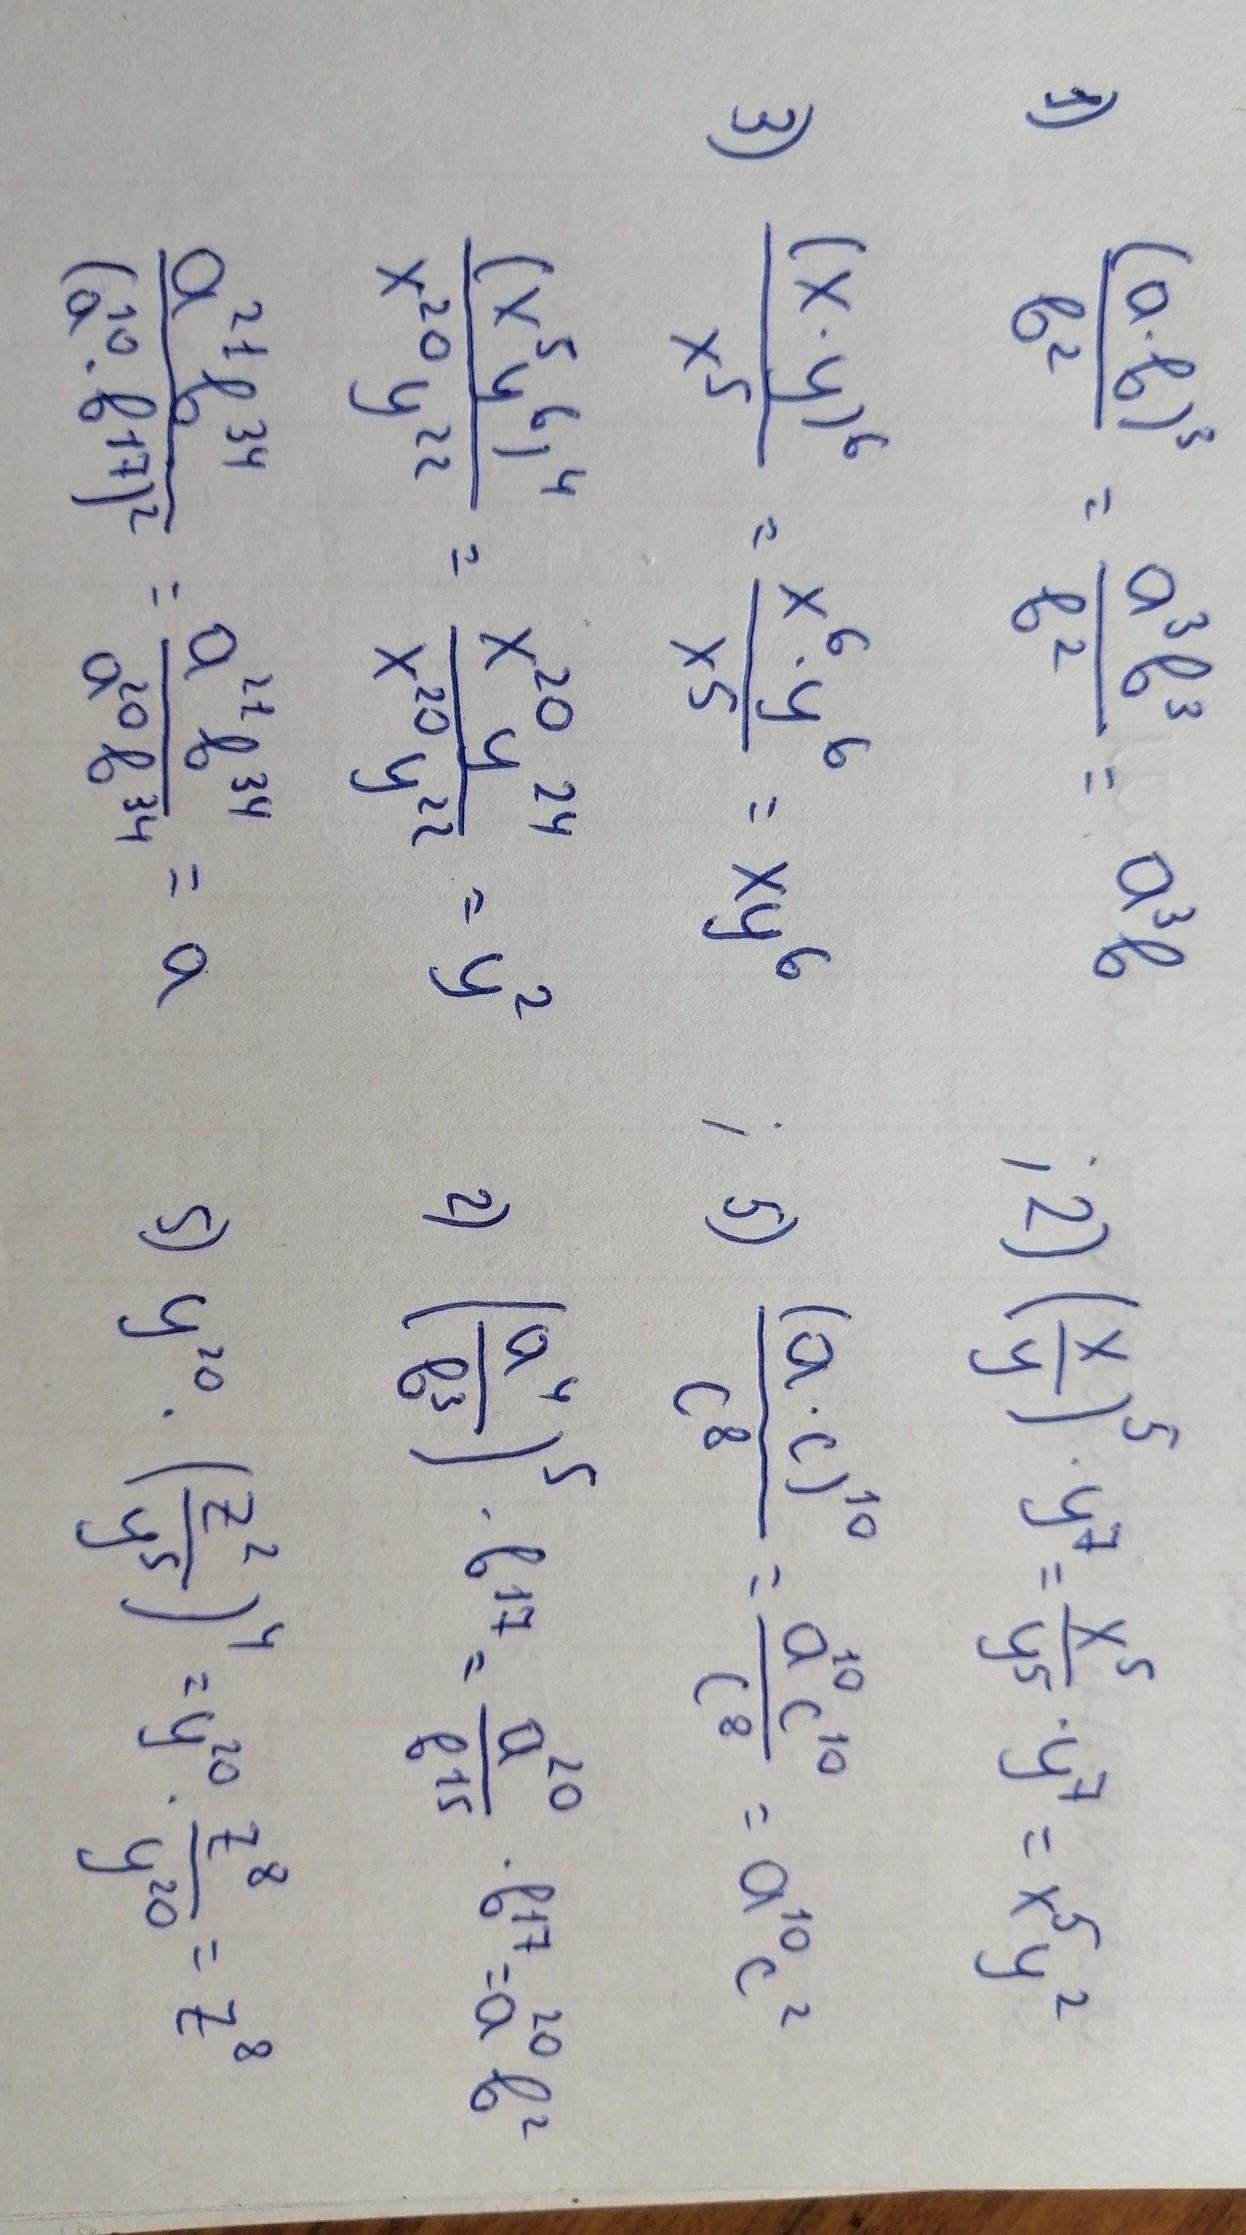 1) (a·b)³/b² = a³b³/b² = a³b ; 2) (x/y)⁵ · y⁷ = x⁵/y⁵ · y⁷ = x⁵y²
3) (x·y)⁶/x⁵ = x⁶·y⁶/x⁵ = xy⁶ ; 5) (a·c)¹⁰/c⁸ = a¹⁰c¹⁰/c⁸ = a¹⁰c²
(x⁵y⁶)⁴/x²⁰y²² = x²⁰y²⁴/x²⁰y²² = y² 2) (a⁴/b³)⁵ · b¹⁷ = a²⁰/b¹⁵ · b¹⁷ = a²⁰b²
a²¹b³⁴/(a¹⁰·b¹⁷)² = a²¹b³⁴/a²⁰b³⁴ = a 5) y²⁰ · (z²/y⁵)⁴ = y²⁰ · z⁸/y²⁰ = z⁸